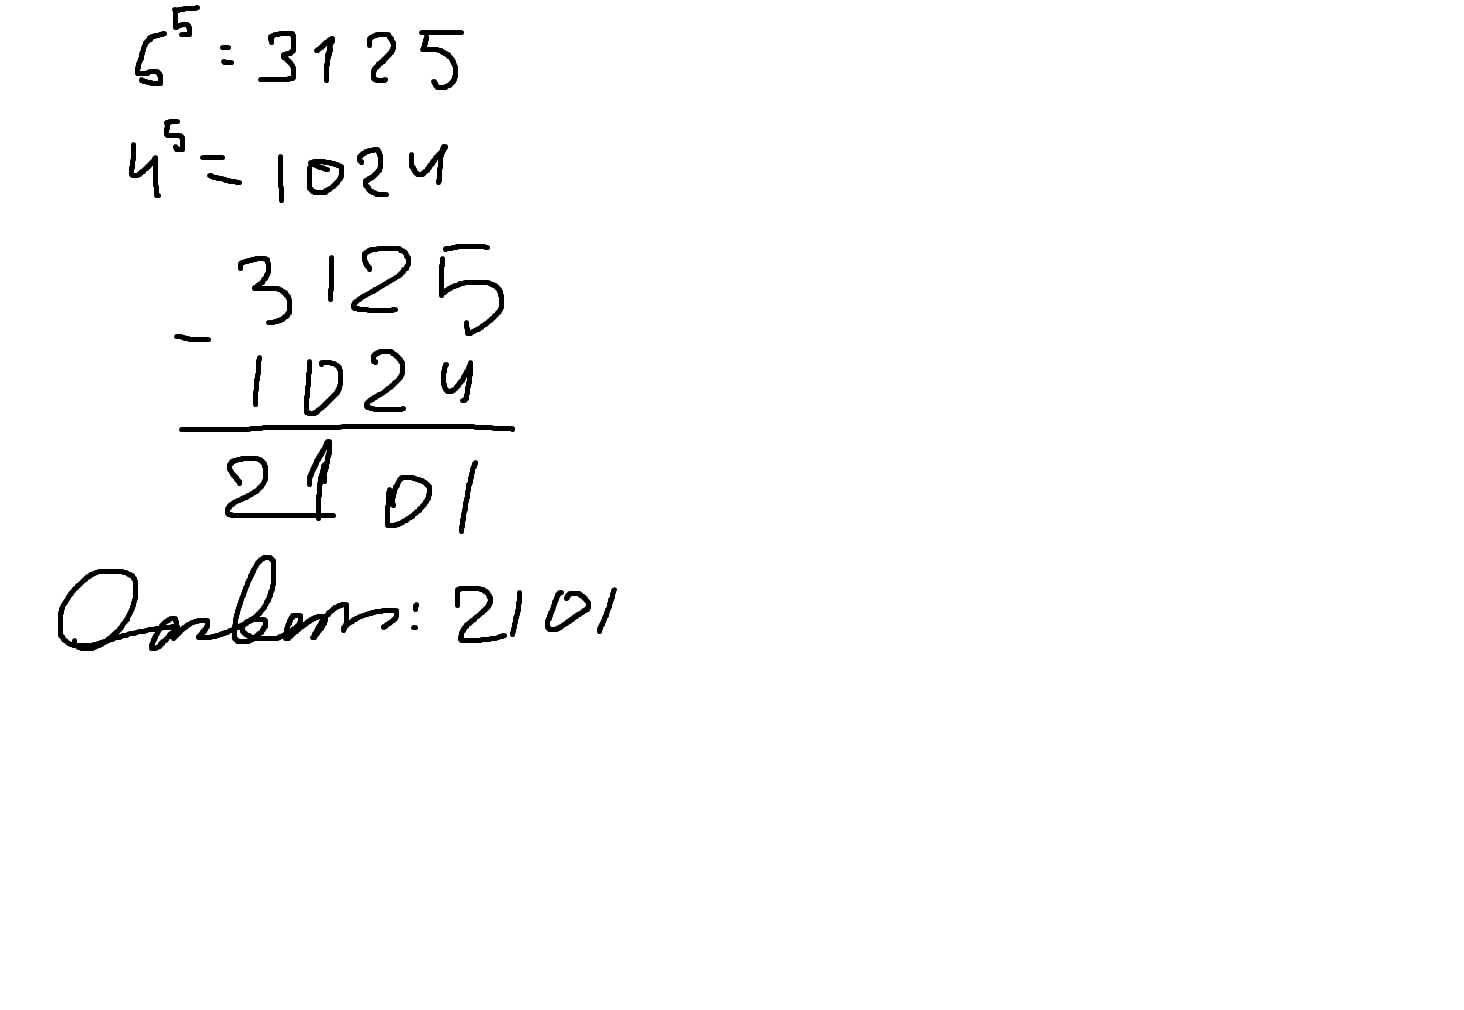 5⁵ = 3125
4⁵ = 1024
3125
-
1024
2101
Ответ: 2101